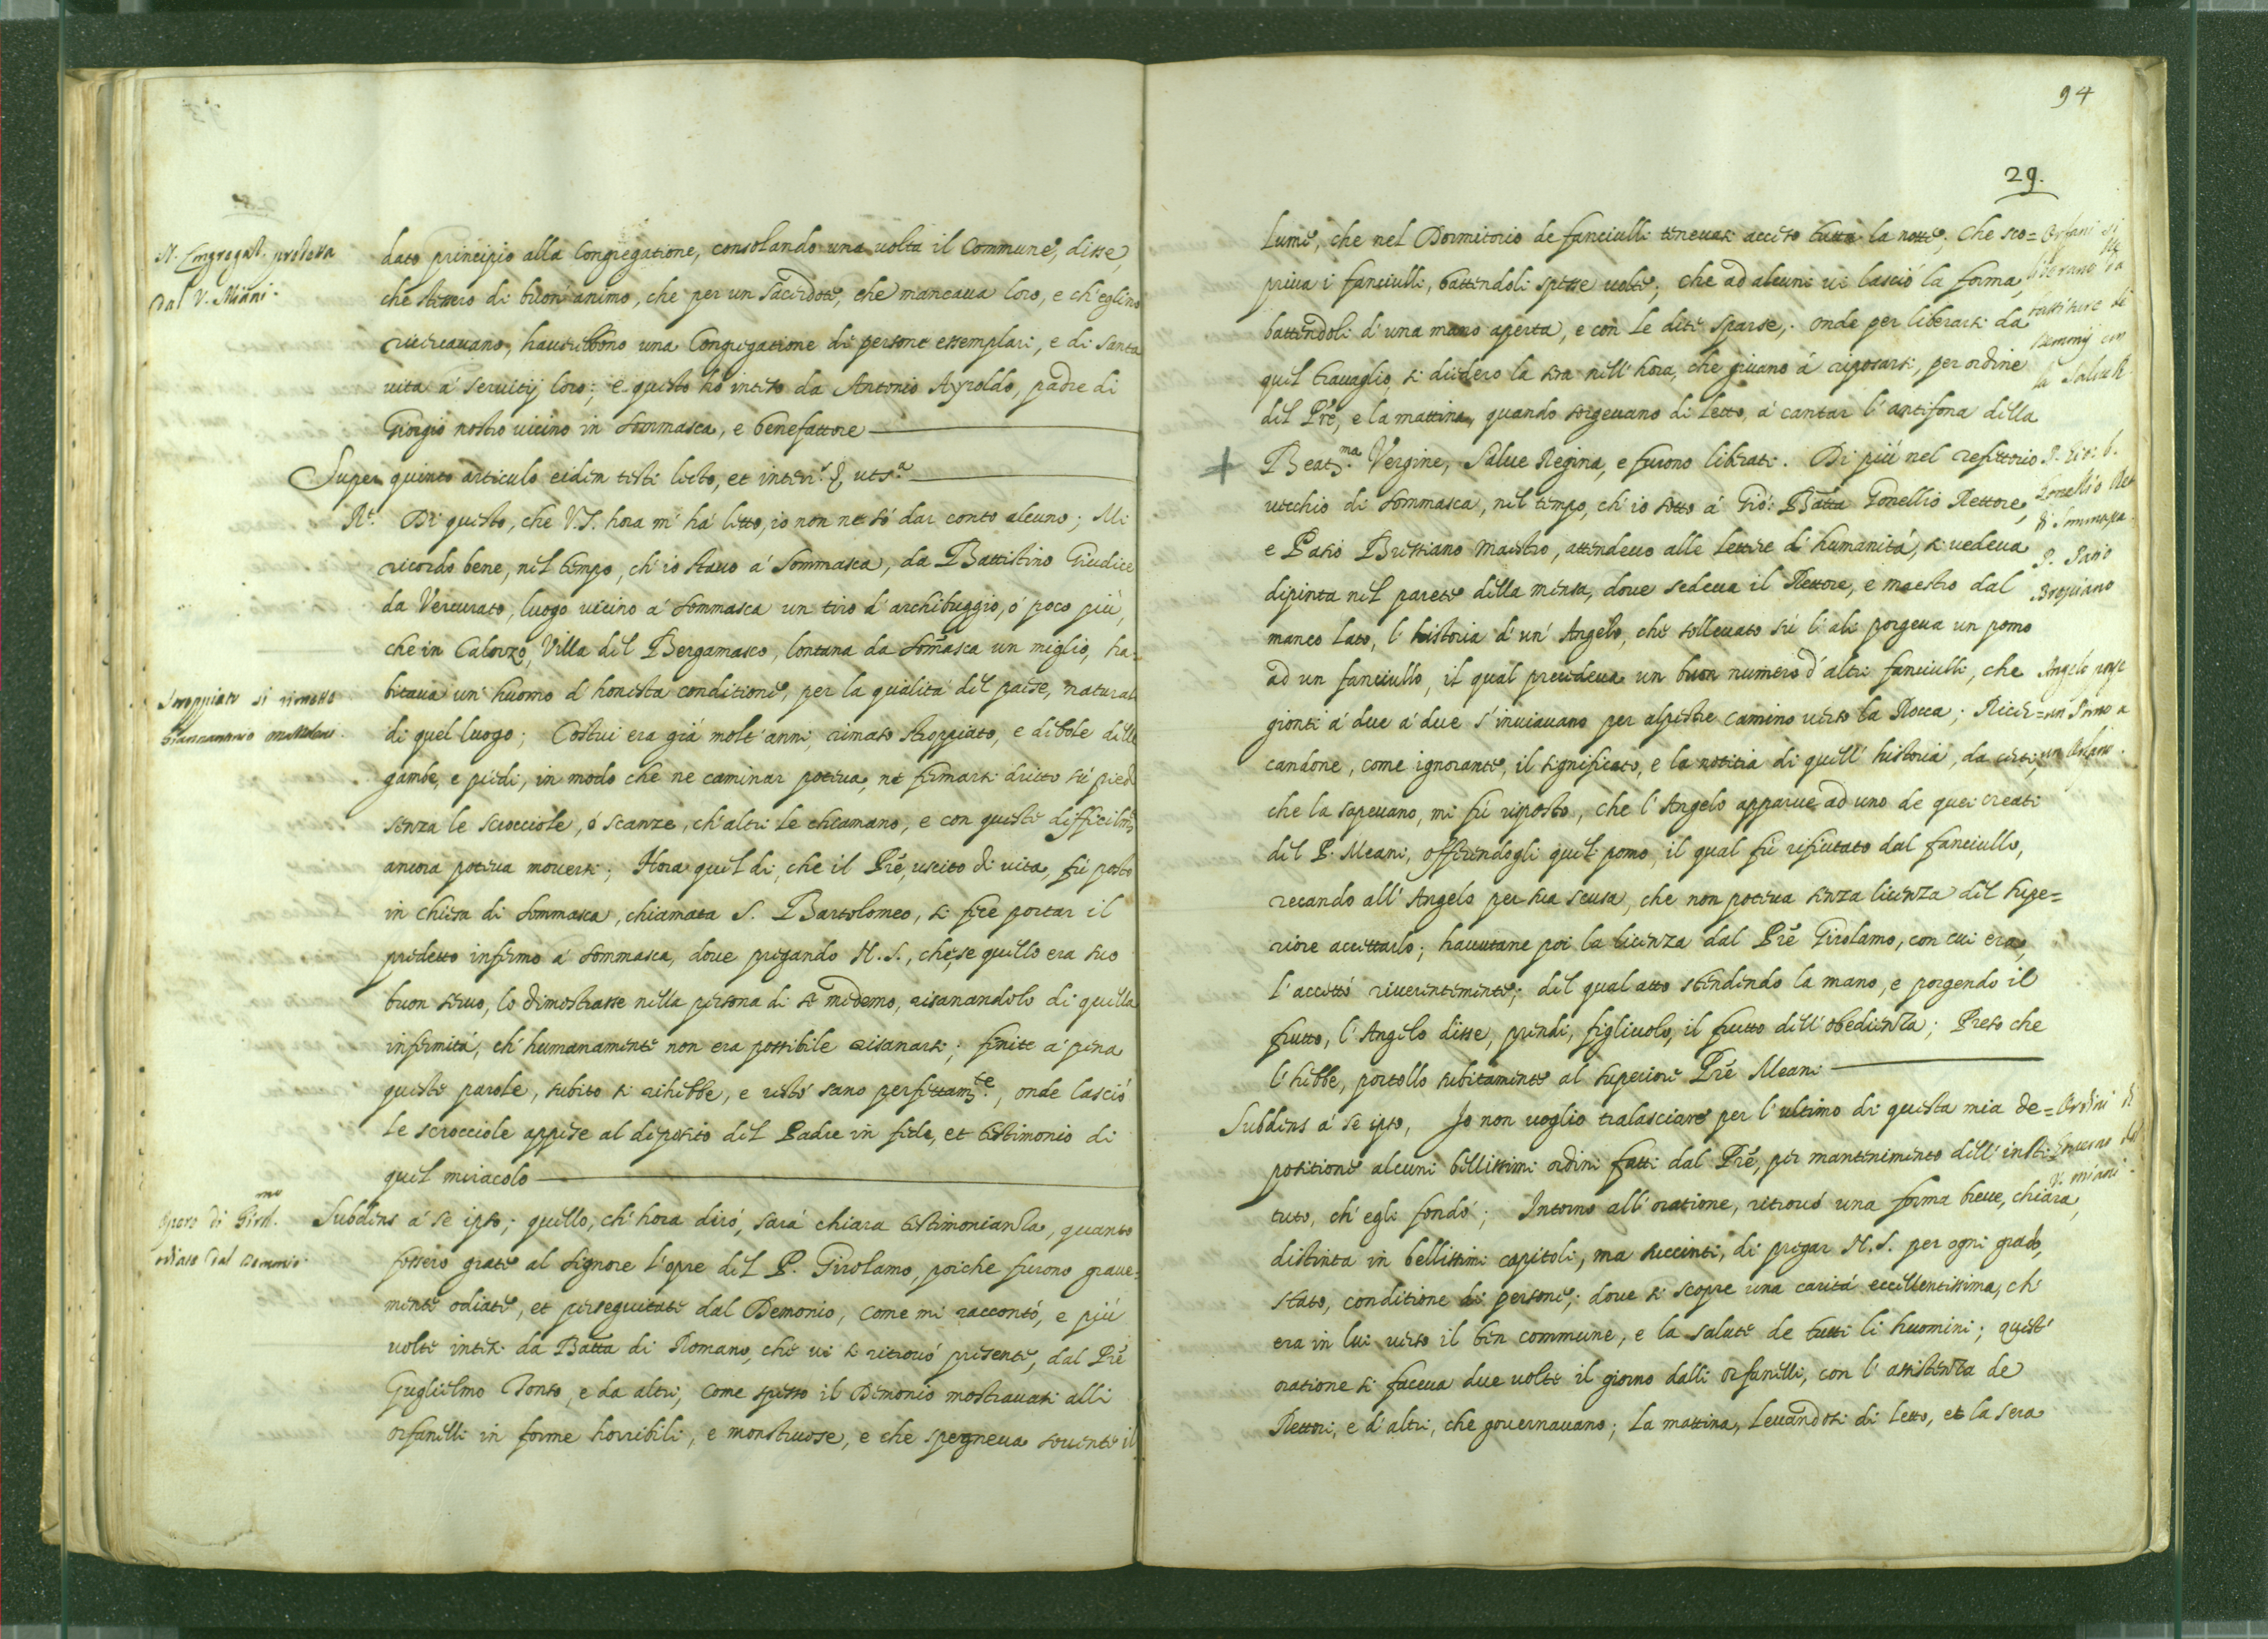 dato principio alla Congregatione, consolando una uolta il Commune, disse,
che stessero di buon' animo, che per un Sacerdote, che mancaua loro, e ch' eglino
ricercauano, hauerebbono una Congregatione di persone essemplari, e di santa
uita á seruitij loro; e questo hó inteso da Antonio Ayroldo, padre di
Giorgio nostro uicino in Sommasca, e benefattore
Super quinto articulo eidem testi lecto, et inter.
Rt. Di questo, che V.S. hora m' há letto, io non ne só dar conto alcuno; Mi
ricordo bene, nel tempo, ch' io stauo á Sommasca, da Battistino Giudice
da Vercurato, luogo uicino á Sommasca un tiro d' archibuggio, ó poco piú,
che in Calorzo, Villa del Bergamasco, lontana da Somasca un miglio, ha-
bitaua un' huomo d' honesta conditione, per la qualitá del paese, natural
di quel luogo; Costui era giá molt' anni, rimaso stroppiato, e debole delle
gambe, e piedi, in modo che ne caminar poteua, ne fermarsi dritto sú piedi
senza le scrocciole, ó scanze, ch' altri le chiamano, e con queste difficilmte
ancora poteua mouersi; Hora quel di, che il Pre, uscito di uita, fú posto
in chiesa di Sommasca, chiamata S. Bartolomeo, si fece portar il
predetto infermo á Sommasca, doue pregando N.S., che, se quello era suo
buon seruo, lo dimostrasse nella persona di se medemo, risanandolo di quella
infermitá, ch' humanamente non era possibile risanarsi; finite á pena
queste parole, subito si rihebbe, e restó sano perfettamte, onde lasció
le scrocciole appese al deposito del Padre in fede, et testimonio di
quel miracolo
Subdens á se ipso; quello, ch' hora diró, sará chiara testimonianza, quanto
fossero grate al Signore l' opre del P. Girolamo, poiche furono graue-
mente odiate, et perseguitate dal Demonio, come mi raccontó, e piú
uolte intesi da Batta di Romano, che ui si ritrouó presente, dal Pre
Guglielmo Tonso, e da altri, come spesso il Demonio mostrauasi alli
orfanelli in forme horribili, e monstruose, e che spegneua souente il
N. Congregat. predetta
dal V. Miani.
Stroppiato si
Opere di Girolmo
odiate dal Demonio.
94
29.
lume, che nel Dormitorio de fanciulli teneuasi acceso tutta la notte; Che sco=
priua i fanciulli, battendoli spesse uolte; che ad alcuni ui lasció la forma,
battendoli d' una mano aperta, e con le dite sparse; onde per liberarsi da
quel trauaglio, si diedero la sera nell' hora, che giuano á riposarsi, per ordine
del Pre, e la mattina, quando sorgeuano di letto, á cantar l' antifona della
Beatma. Vergine, Salue Regina, e furono liberati. Di piú nel refettorio
uecchio di Sommasca, nel tempo, ch' io sotto á Gió: Batta Gonellio Rettore,
e Pasio Bressiano maestro, attendeuo alle lettere d' humanitá, si uedeua
dipinta nel parete della mensa, doue sedeua il Rettore, e maestro dal
manco lato, l' historia d' un' Angelo, che solleuato sú l' ali porgeua un pomo
ad un fanciullo, il qual precedeua un buon numero d' altri fanciulli, che
gionti á due á due s' inuiauano per alpestre camino uerso la Rocca; Ricer=
candone, come ignorante, il significato, e la notitia di quell' historia, da certi,
che la sapeuano, mi fú risposto, che l' Angelo apparue ad uno de quei creati
del P. Meani, offerendogli quel pomo, il qual fú rifiutato dal fanciullo,
recando all' Angelo per sua scusa, che non poteua senza licenza del supe=
riore accettarlo; hauutane poi la licenza dal Pre Girolamo, con cui era,
l' accettó riuerentemente; del qual atto stendendo la mano, e porgendo il
frutto, l' Angelo disse, prendi, figliuolo, il frutto dell' obedienza; Preso che
l' hebbe, portollo subitamente al superiore Pre Meani
Subdens á se ipso, Io non uoglio tralasciare per l' ultimo di questa mia de=
positione alcuni bellissimi ordini fatti dal Pre, per mantenimento dell' insti-
tuto, ch' egli fondó; Intorno all' oratione, ritrouó una forma breue, chiara,
distinta in bellissimi capitoli, ma succinti, di pregar N.S. per ogni grado,
stato, conditione di persone; doue si scopre una caritá eccellentissima, ch'
era in lui uerso il ben commune, e la salute de tutti li huomini; quest'
oratione si faceua due uolte il giorno dalli orfanelli, con l' assistenza de
Rettori, e d' altri, che gouernauano; La mattina, leuandosi di letto, et la sera
Orfani si
liberano da
battiture di
Demonij con
la Salue R.
P. Gio: b.
Gonellio Ret
di Sommasca.
P. Pasio
Bressiano
Angelo porge
un Pomo a
un Orfano.
Ordini di
V. Miani.